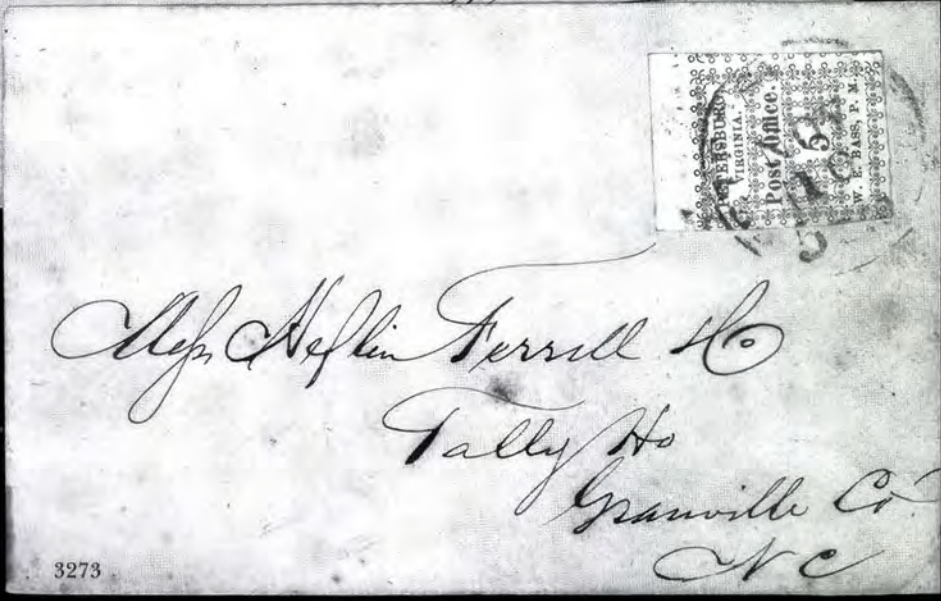 PETERSBURG
VIRGINIA.
Post Office.
5
W. E. BASS, P. M.
Mess Heflin Ferrell & Co
Tally Ho
Granville Co
N C
3273